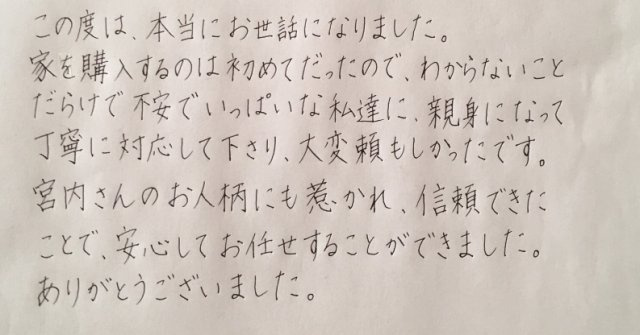 この度は、本当にお世話になりました。
家を購入するのは初めてだったので、わからないこと
だらけで不安でいっぱいな私達に、親身になって
丁寧に対応して下さり、大変頼もしかったです。
宮内さんのお人柄にも惹かれ、信頼できた
ことで、安心してお任せすることができました。
ありがとうございました。